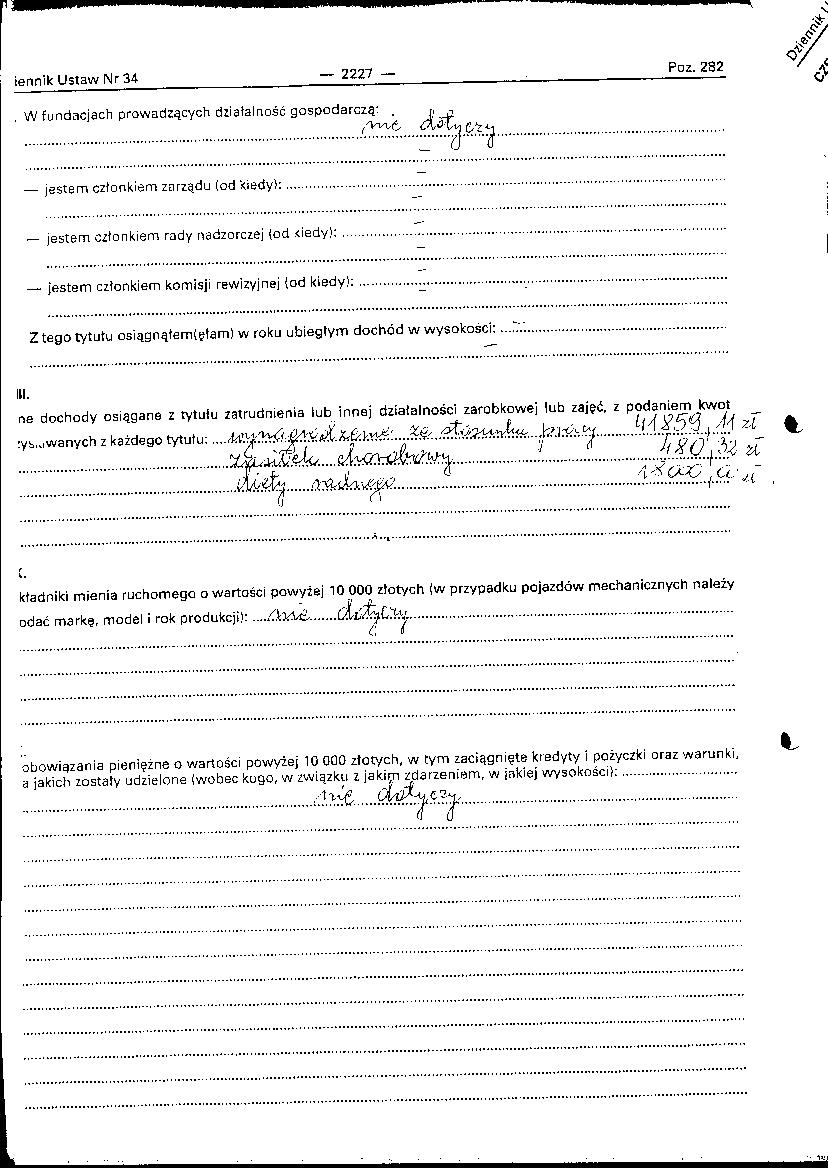 iennik Ustaw Nr 34 — 2227 — Poz. 282
Dziennik U
. W fundacjach prowadzących działalność gospodarczą:
nie dotyczy
—
— jestem członkiem zarządu (od kiedy):
— jestem członkiem rady nadzorczej (od kiedy):
— jestem członkiem komisji rewizyjnej (od kiedy):
Z tego tytułu osiągnąłem(ęłam) w roku ubiegłym dochód w wysokości:
—
III.
ne dochody osiągane z tytułu zatrudnienia lub innej działalności zarobkowej lub zajęć, z podaniem kwot
wanych z każdego tytułu: wynagrodzenie ze stosunku pracy 41859,11 zł
zasiłek chorobowy 480,32 zł
diety radnego zł
kładniki mienia ruchomego o wartości powyżej 10 000 złotych (w przypadku pojazdów mechanicznych należy
odać markę, model i rok produkcji): nie dotyczy
obowiązania pieniężne o wartości powyżej 10 000 złotych, w tym zaciągnięte kredyty i pożyczki oraz warunki,
a jakich zostały udzielone (wobec kogo, w związku z jakim zdarzeniem, w jakiej wysokości):
nie dotyczy